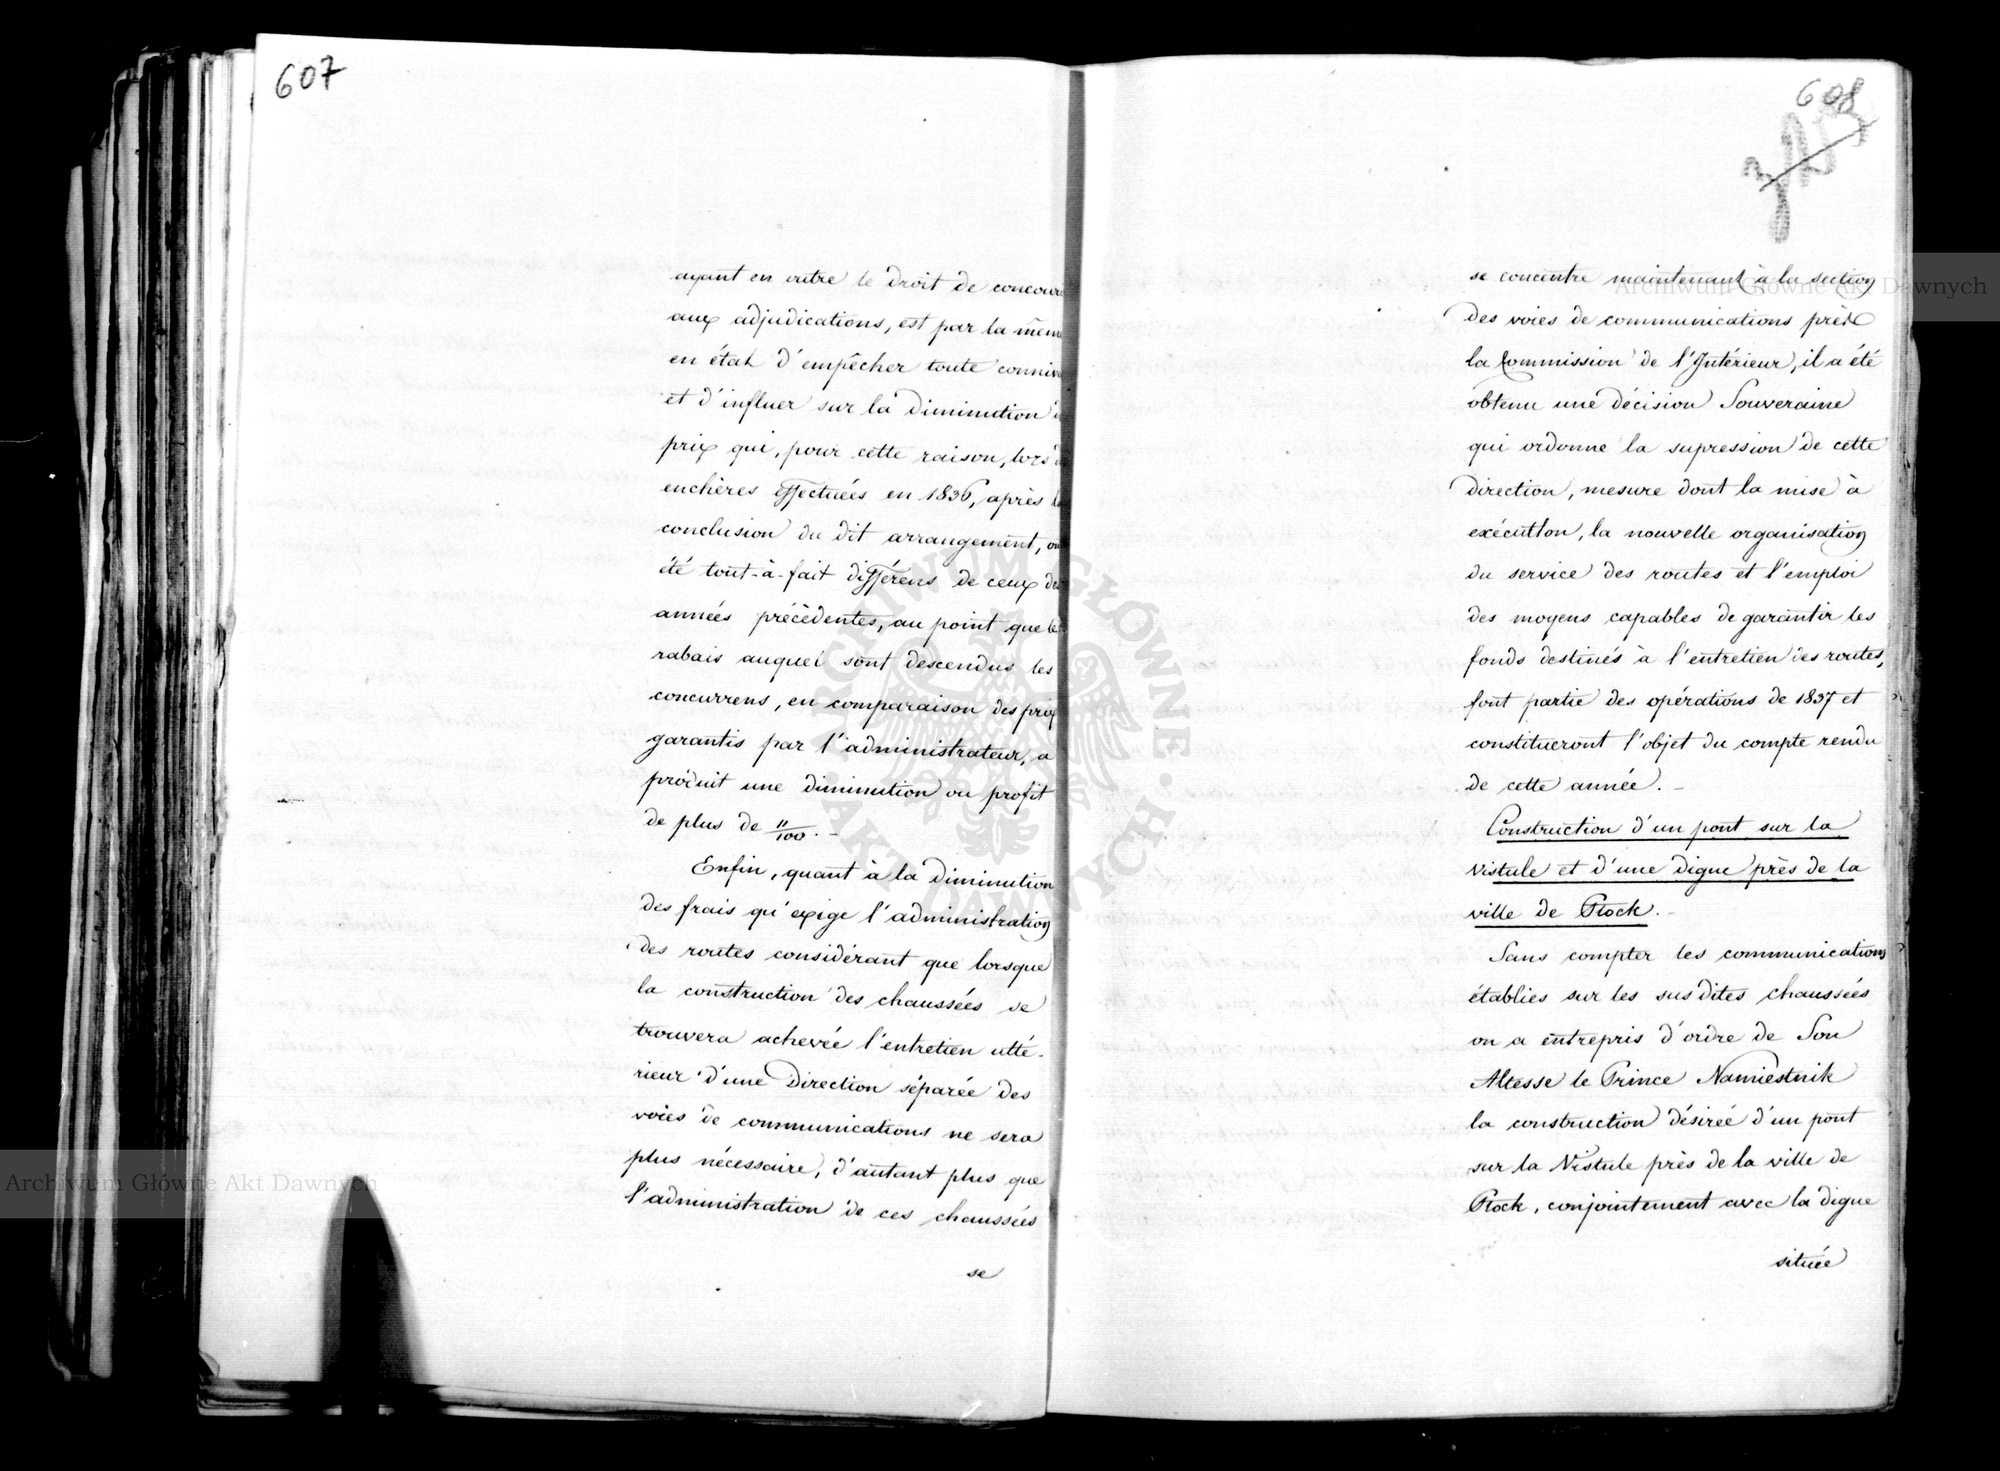 607
ayant en outre le droit de concour
aux adjudications, est par la même
en état d'empêcher toute conniv
et d'influer sur la diminution d
prix qui, pour cette raison, lors d
enchères effectuées en 1836, après la
conclusion du dit arrangement, on
été tout-à-fait différens de ceux de
années précédentes, au point que le
rabais auquel sont descendus les
concurrens, en comparaison des prix
garantis par l'administrateur, a
produit une diminution ou profit
de plus de 11/100. -
Enfin, quant à la diminution
des frais qu'exige l'administration
des routes considérant que lorsque
la construction des chaussées se
trouvera achevée l'entretien ulté-
rieur d'une Direction séparée des
voies de communications ne sera
plus nécessaire, d'autant plus que
l'administration de ces chaussées
se
608
se concentre maintenant à la section
des voies de communications près
la Commission de l'Intérieur, il a été
obtenu une décision Souveraine
qui ordonne la supression de cette
direction, mesure dont la mise à
exécution, la nouvelle organisation
du service des routes et l'emploi
des moyens capables de garantir les
fonds destinés à l'entretien des routes,
font partie des opérations de 1837 et
constitueront l'objet du compte rendu
de cette année. -
Construction d'un pont sur la
Vistule et d'une digue près de la
ville de Plock. -
Sans compter les communications
établies sur les susdites chaussées
on a entrepris d'ordre de Son
Altesse le Prince Namiestnik
la construction désirée d'un pont
sur la Vistule près de la ville de
Plock, conjointement avec la digue
située
Archiwum Główne Akt Dawnych
Archiwum Główne Akt Dawnych
ARCHIWUM GŁÓWNE AKT DAWNYCH